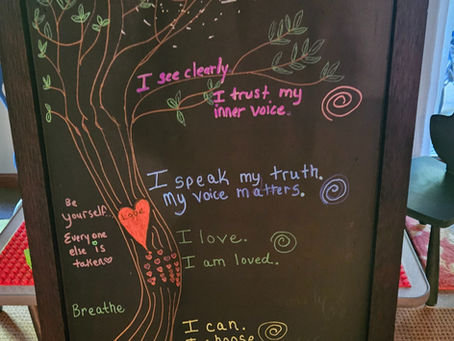 I see clearly
I trust my
inner voice.
I speak my truth.
my voice matters.
Be
yourself.
Everyone
else is
taken
Love
I love.
I am loved.
Breathe
I can.
I choose